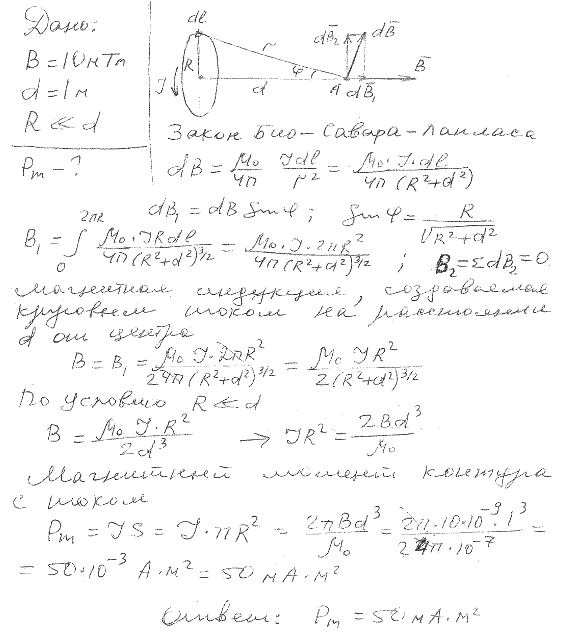 Дано:
B = 10 нТл
d = 1 м
R ≪ d
Pm - ?
dl
R
r
J
d
φ
A
dB̄₂
dB̄
dB̄₁
B̄
Закон Био-Савара-Лапласа
dB = μ₀/4π Jdl/r² = μ₀·J·dl/4π(R²+d²)
dB₁ = dB sin φ ; sin φ = R/√(R²+d²)
B₁ = ∫₀^2πR μ₀·JRdl/4π(R²+d²)^3/2 = μ₀·J·2πR²/4π(R²+d²)^3/2 ; B₂ = ΣdB₂ = 0
Магнитная индукция, создаваемая
круговым током на расстоянии
d от центра
B = B₁ = μ₀ J·2πR²/24π(R²+d²)^3/2 = μ₀ JR²/2(R²+d²)^3/2
По условию R ≪ d
B = μ₀ J·R²/2d³ → JR² = 2Bd³/μ₀
Магнитный момент контура
с током
Pm = JS = J·πR² = 2πBd³/μ₀ = 2π·10·10⁻⁹·1³/24π·10⁻⁷ =
= 50·10⁻³ А·м² = 50 мА·м²
Ответ: Pm = 50 мА·м²